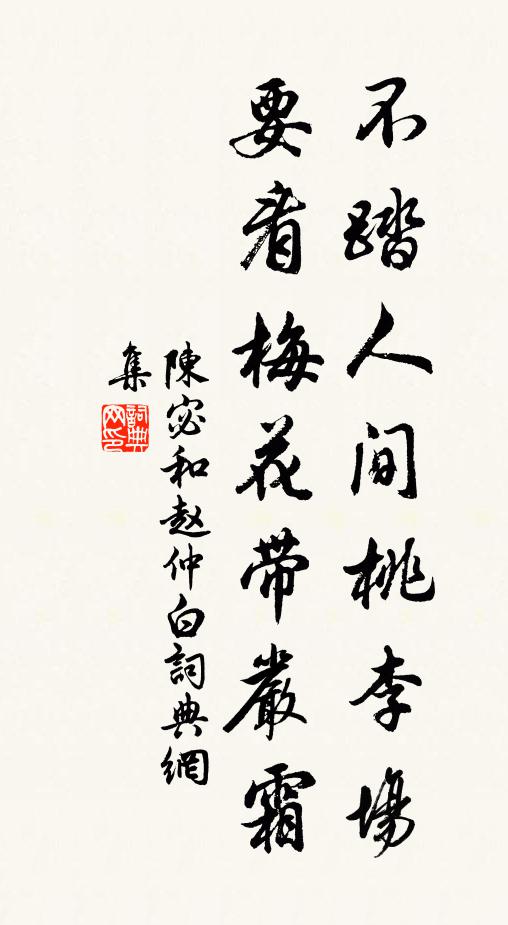 不踏人间桃李場
要看梅花带嚴霜
陳宓和赵仲白詞典網
集
詞典网印